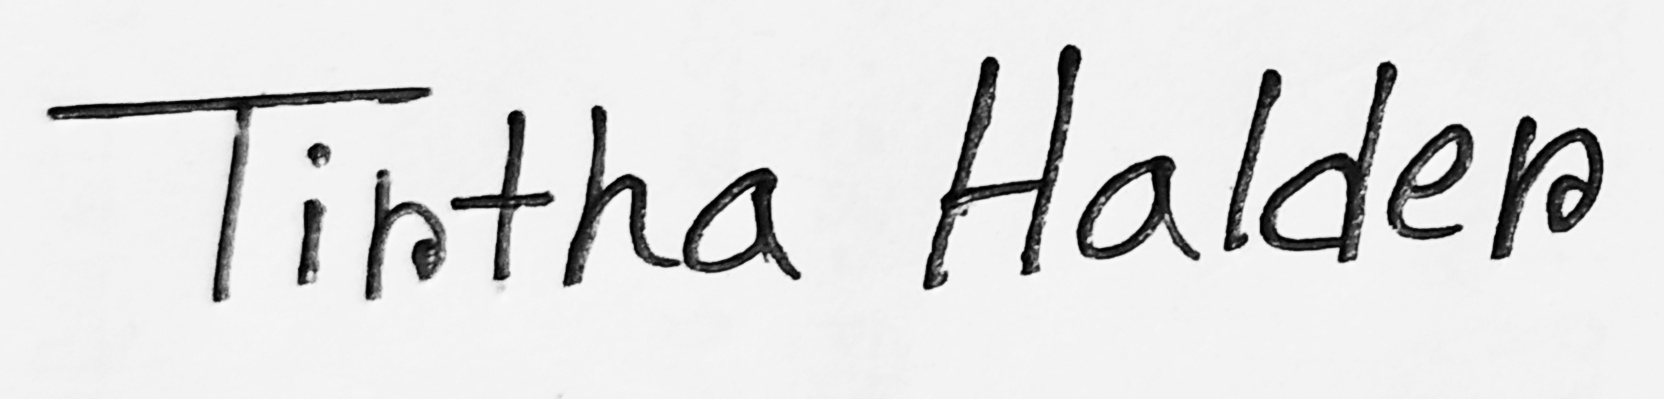 Tirtha Halder